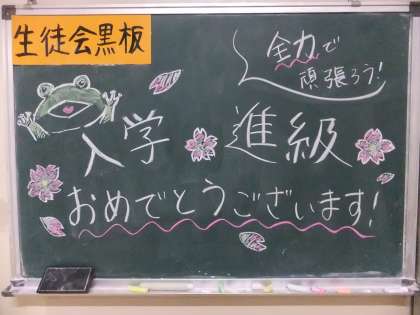 生徒会黒板
全力で
頑張ろう!
入学 進級
おめでとうございます!